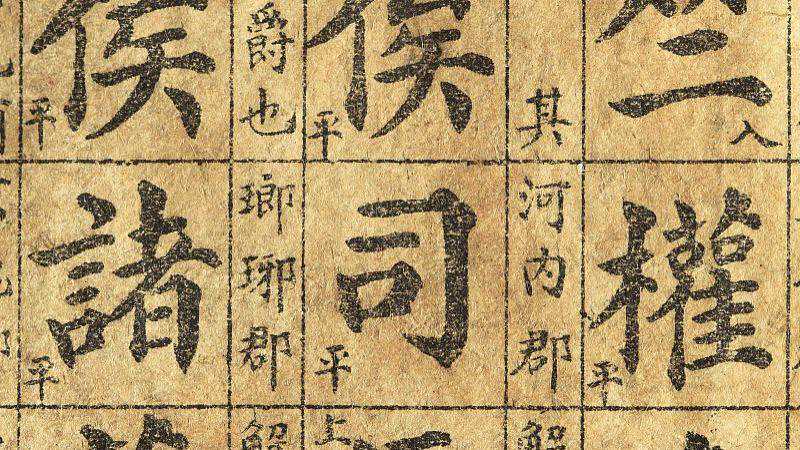 竺入
權平
其河內郡
侯平
司平
上
爵也瑯琊郡
侯平
諸平